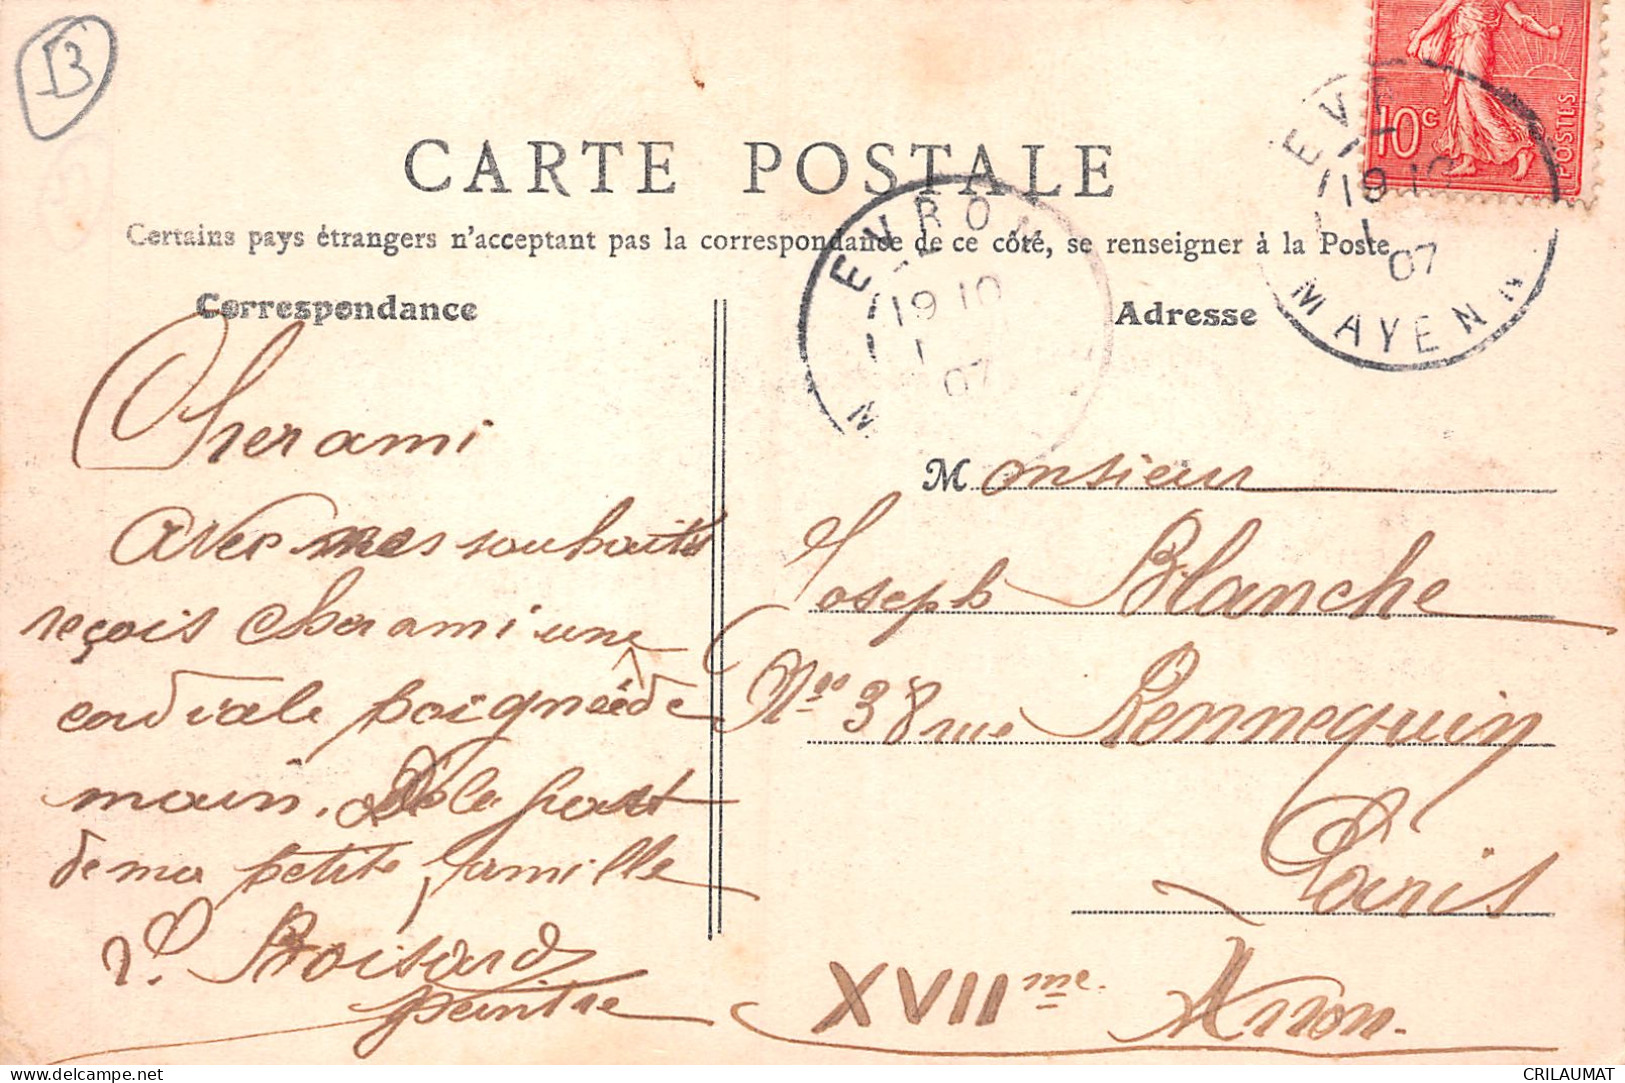 53
10c
POSTES
EVRON
19 10
1
07
MAYENN
CARTE POSTALE
Certains pays étrangers n'acceptent pas la correspondance de ce côté, se renseigner à la Poste
EVRON
19 10
1
07
M
Correspondance
Adresse
Cher ami
avec mes souhaits
reçois cher ami une
cordiale poignée de
main. De la part
de ma petite famille
Boisard
peintre
Monsieur
Joseph Blanche
No 38 rue Rennequin
Paris
XVII me Arron.
CRILAUMAT